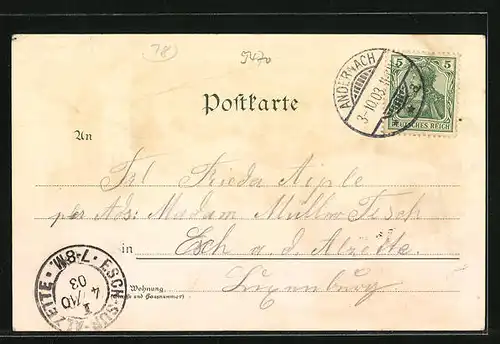 78
5470
ANDERNACH
3-10.03.
5 5
DEUTSCHES REICH
Postkarte
An
Frl Frieda Aiple
per Ads: Madam Mullmo Tesch
in Esch a. d. Alzette.
Luxenburg.
Wohnung.
(Straße und Hausnummer)
ESCH-SUR-ALZETTE · 7-8M.
4/10
03